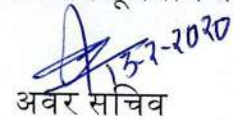 13-2-2020
अवर सचिव